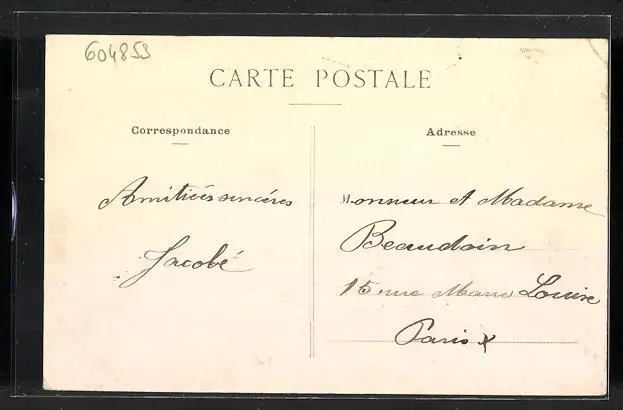 604853
CARTE POSTALE
Correspondance
Adresse
Amitiées sincéres
Jacobé
Monsieur et Madame
Beaudoin
15 rue Marie Louise
Paris X